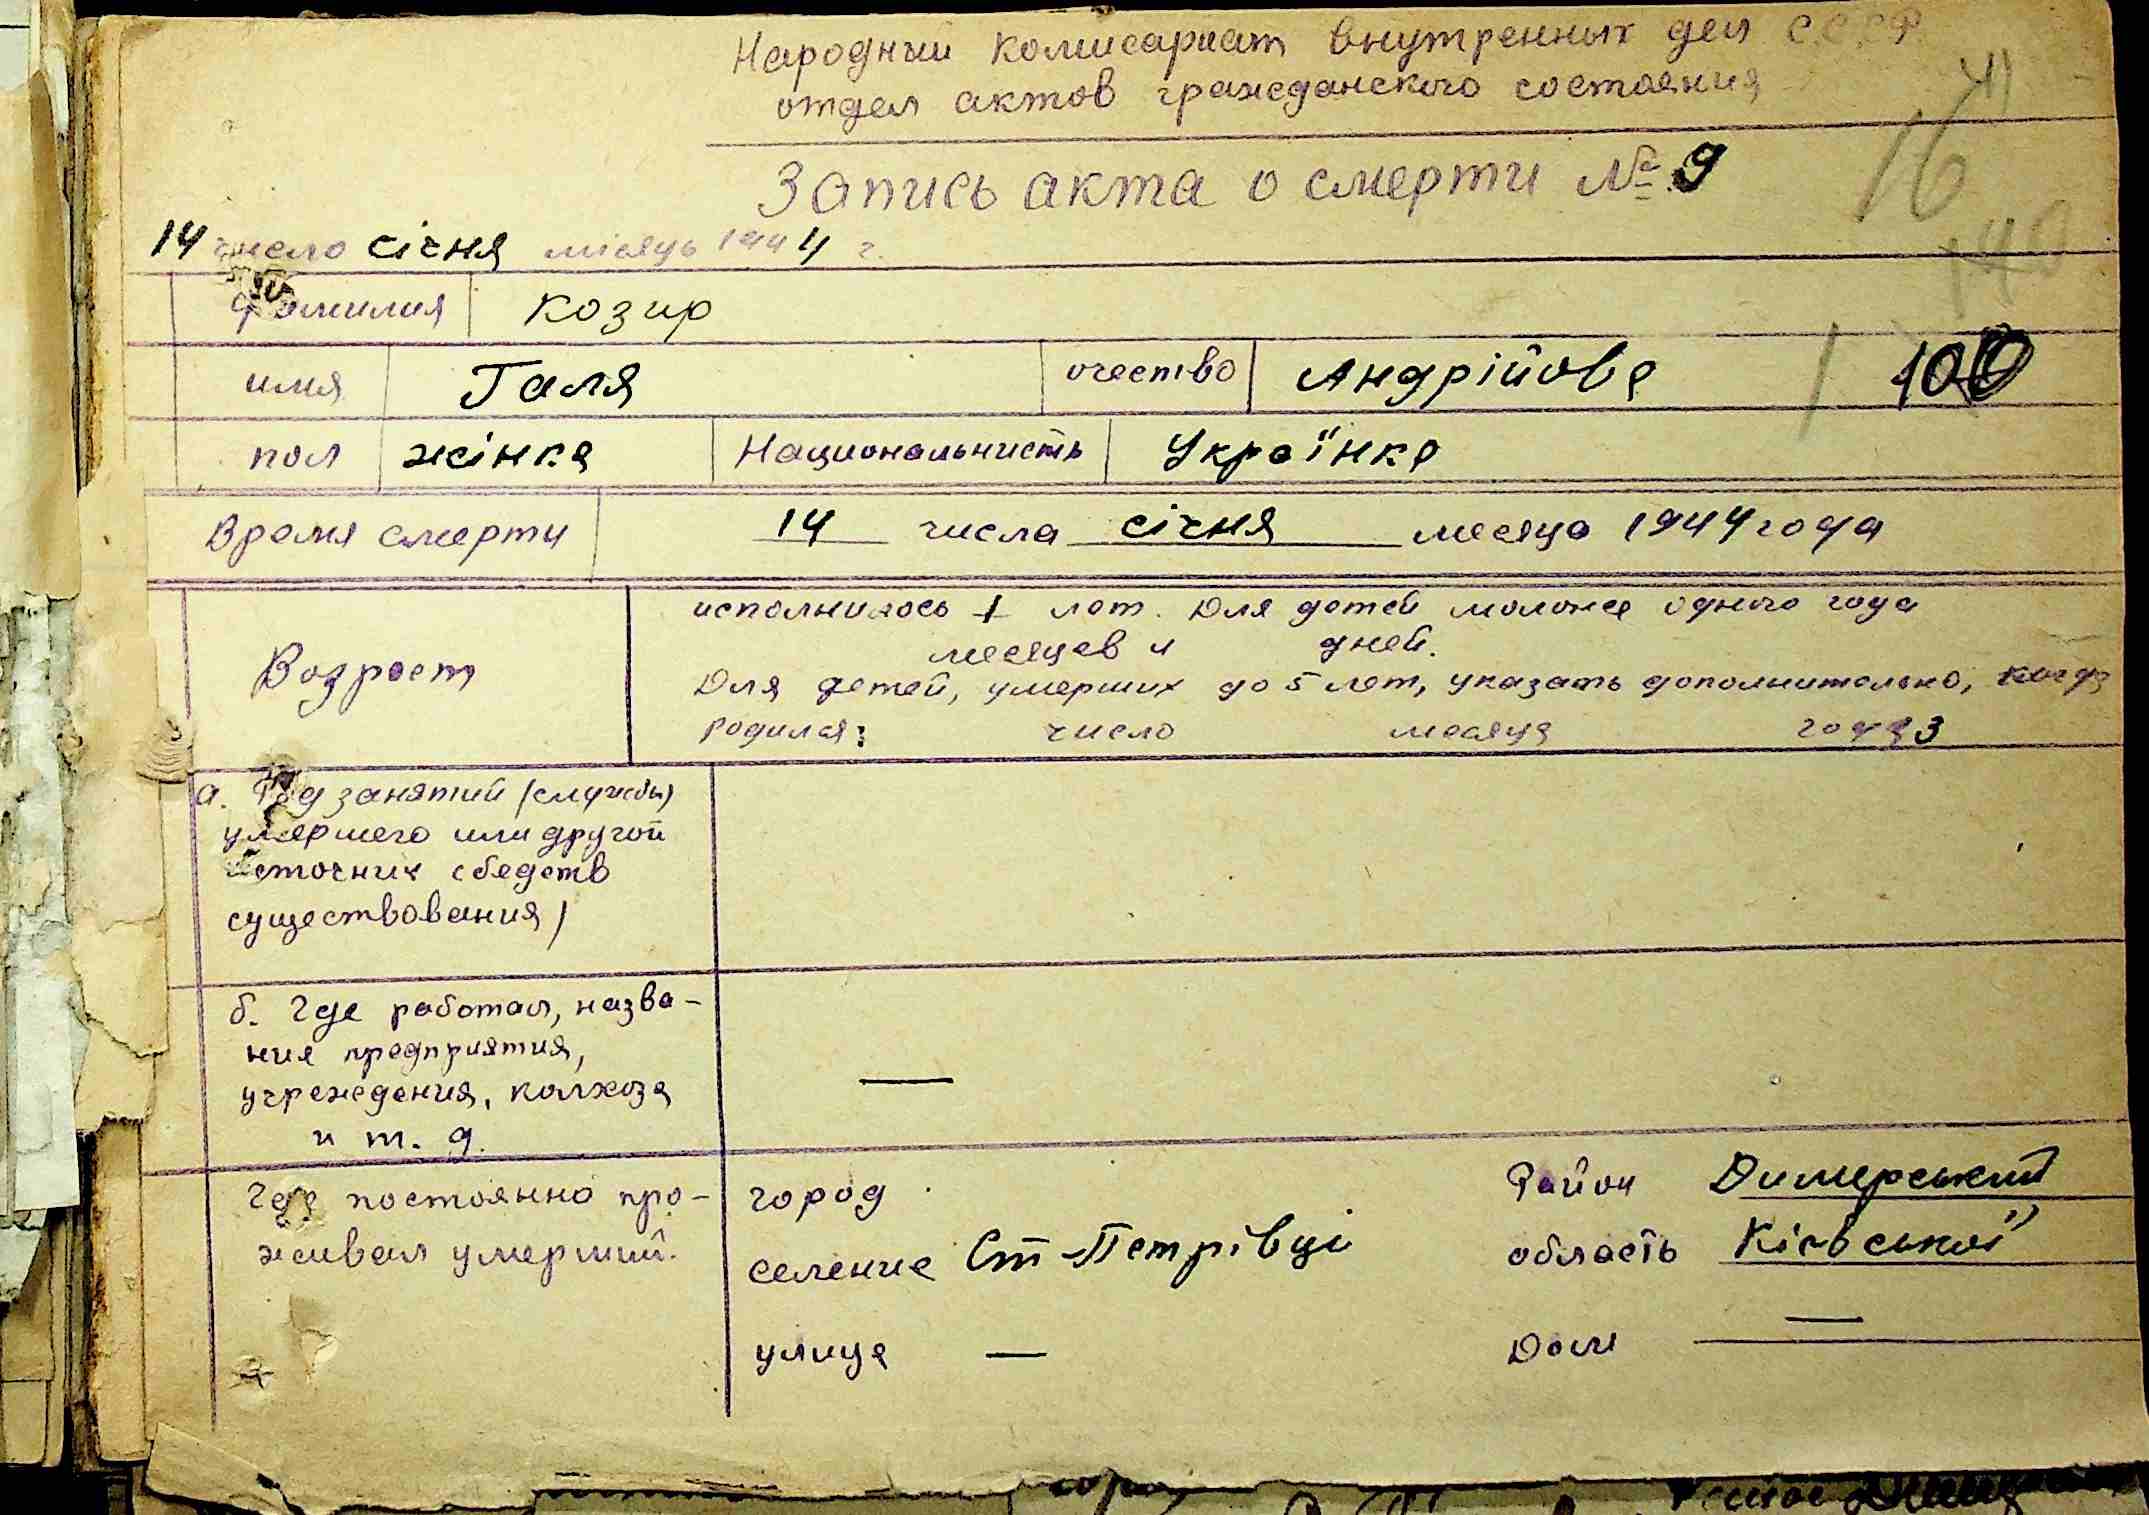 Народный комисариат внутренных дел С.С.С.Р
отдел актов гражданского состояния
41
Запись акта о смерти № 9
16
14 число січня місяць 1944 г.
140
фамилия Козир
имя Галя очество Андрійова
100
пол жінка Национальнисть Українка
Время смерти 14 числа січня месяца 1944 года
Возраст
исполнилось 1 лет. Для детей моложе одного года
месяцев и дней.
Для детей, умерших до 5 лет, указать дополнительно, когда
родился: число месяца года 3
а. Род занятий (службы)
умершего или другой
источник сбедств
существования)
б. Где работал, назва-
ние предприятия,
учреждения, колхоза
и т. д. —
Где постоянно про-
живал умерший.
город Район Димерський
селение Ст-Петрівці область Кієвської
улица — Дом —